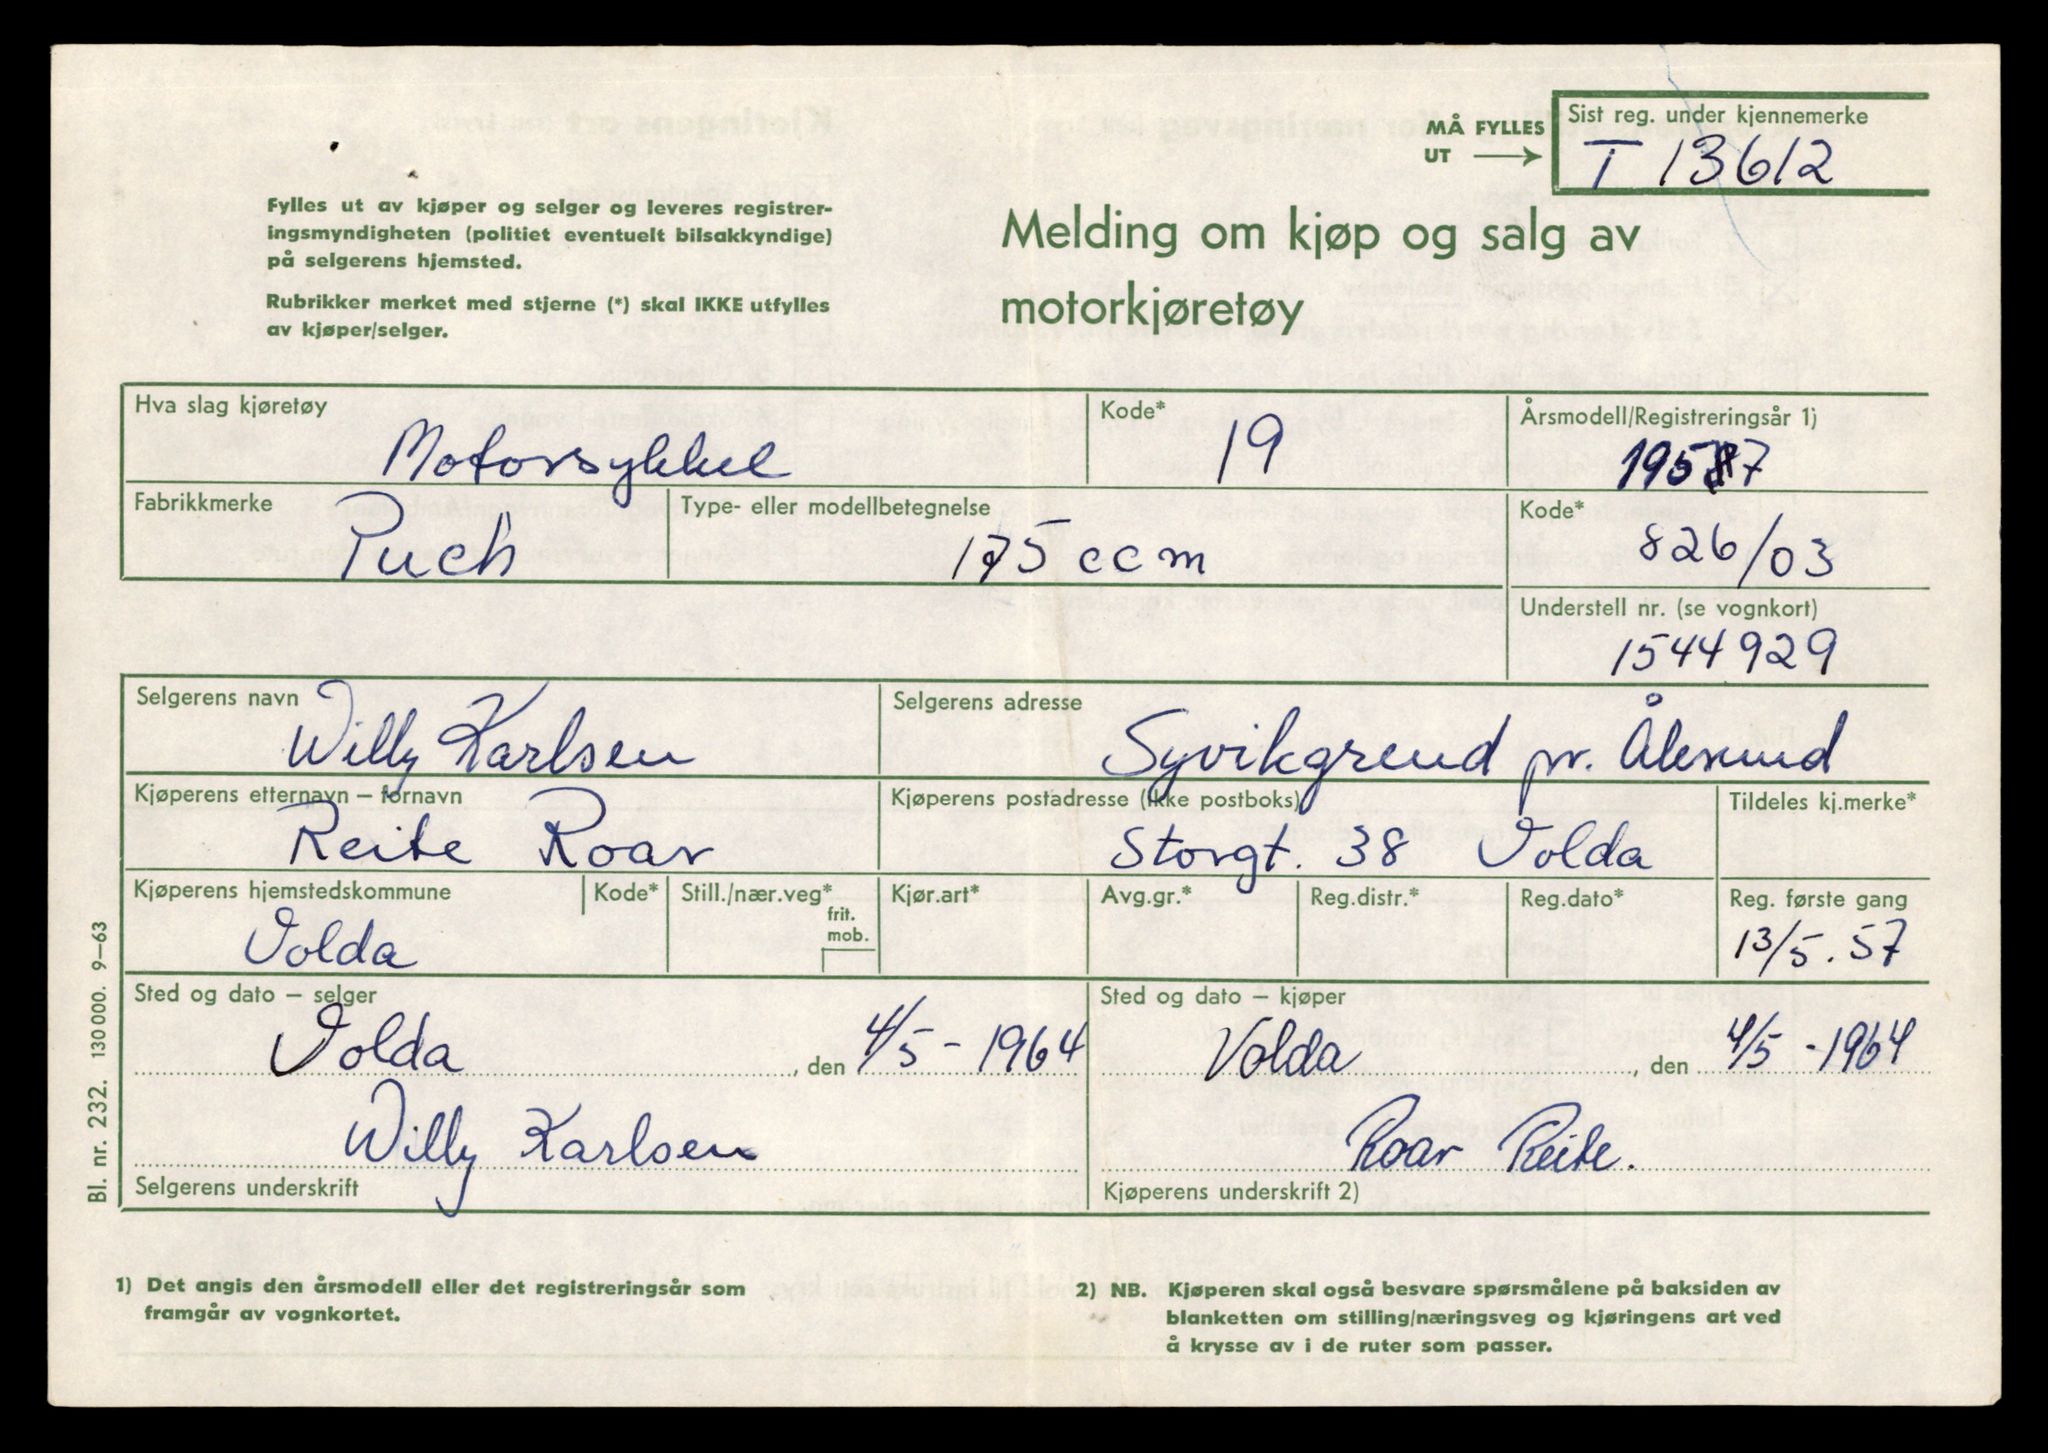 MÅ FYLLES UT
Sist reg. under kjennemerke
T 13612
Fylles ut av kjøper og selger og leveres registrer-
ingsmyndigheten (politiet eventuelt bilsakkyndige)
på selgerens hjemsted.
Rubrikker merket med stjerne (*) skal IKKE utfylles
av kjøper/selger.
Melding om kjøp og salg av
motorkjøretøy
Hva slag kjøretøy
Motorsykkel
Kode*
19
Årsmodell/Registreringsår 1)
1957
Fabrikkmerke
Puch
Type- eller modellbetegnelse
175 ccm
Kode*
826/03
Understell nr. (se vognkort)
1544929
Selgerens navn
Willy Karlsen
Selgerens adresse
Syvikgrend pr. Ålesund
Kjøperens etternavn – fornavn
Reite Roar
Kjøperens postadresse (ikke postboks)
Storgt. 38 Volda
Tildeles kj.merke*
Kjøperens hjemstedskommune
Volda
Kode*
Still./nær.veg*
frit.
mob.
Kjør.art*
Avg.gr.*
Reg.distr.*
Reg.dato*
Reg. første gang
13/5. 57
Sted og dato – selger
Volda, den 4/5 - 1964
Willy Karlsen
Selgerens underskrift
Sted og dato – kjøper
Volda, den 4/5 - 1964
Roar Reite.
Kjøperens underskrift 2)
Bl. nr. 232. 130 000. 9–63
1) Det angis den årsmodell eller det registreringsår som
framgår av vognkortet.
2) NB. Kjøperen skal også besvare spørsmålene på baksiden av
blanketten om stilling/næringsveg og kjøringens art ved
å krysse av i de ruter som passer.